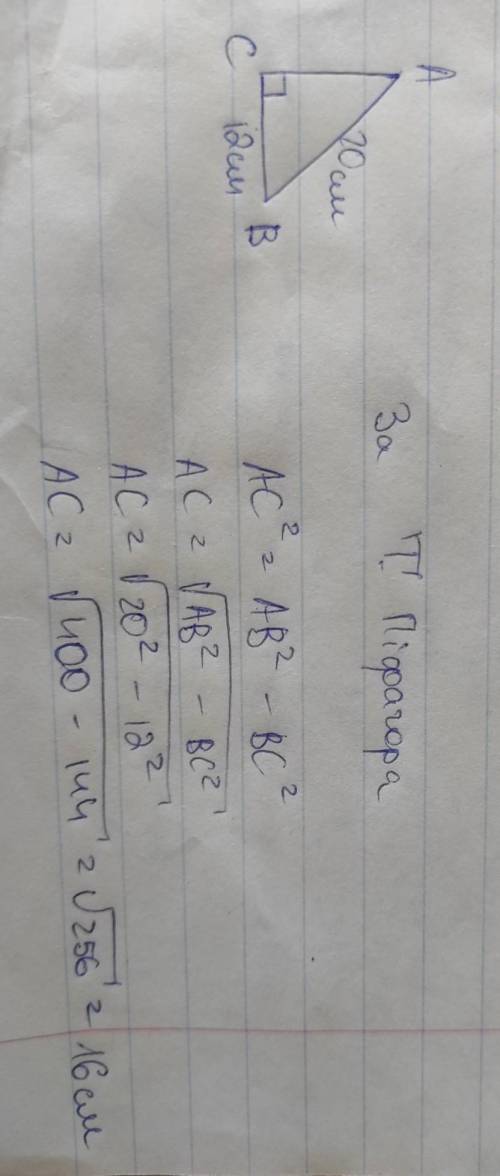 A
C
20см
12см
B
За Т. Піфагора
AC² = AB² - BC²
AC = √AB² - BC²
AC = √20² - 12²
AC = √400 - 144 = √256 = 16см